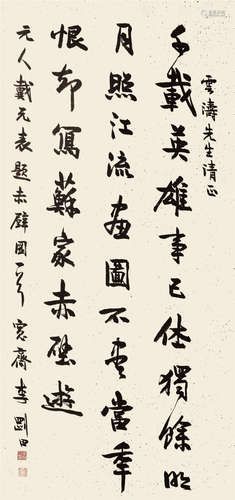 雲濤先生清正
千載英雄事已休獨餘明
月照江流畫圖不盡當年
恨却寫蘇家赤壁遊
元人戴元表題赤壁圖一首 齋李剛田